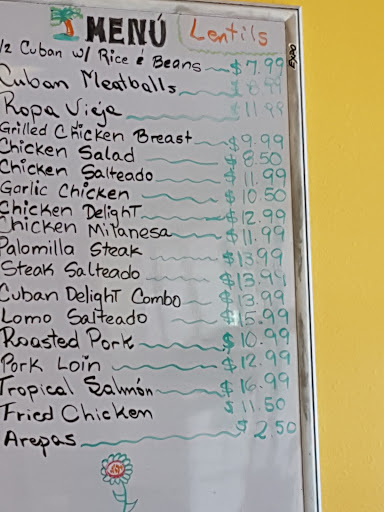 MENÚ Lentils
1/2 Cuban w/ Rice & Beans $7.99
Cuban Meatballs $8.99
Ropa Vieja $11.99
Grilled Chicken Breast $9.99
Chicken Salad $8.50
Chicken Salteado $11.99
Garlic Chicken $10.50
Chicken Delight $12.99
Chicken Milanesa $11.99
Palomilla Steak $13.99
Steak Salteado $13.99
Cuban Delight Combo $13.99
Lomo Salteado $15.99
Roasted Pork $10.99
Pork Loin $12.99
Tropical Salmón $16.99
Fried Chicken $11.50
Arepas $2.50
EXPO